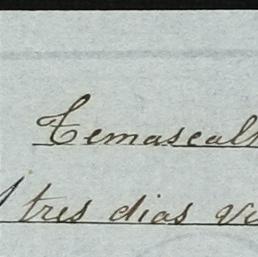 Temascal
tres dias